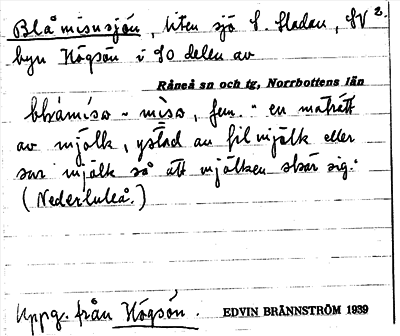 Blåmisusjön, liten sjö S. Sladan, SV 2.
byn Högsön i SO delen av
Råneå sn och tg, Norrbottens län
misɷ, fem. "en maträtt
av mjölk, ystad au filmjölk eller
sur mjölk så att mjölken skär sig."
(Nederluleå.)
Uppg. från Högsön. EDVIN BRÄNNSTRÖM 1939